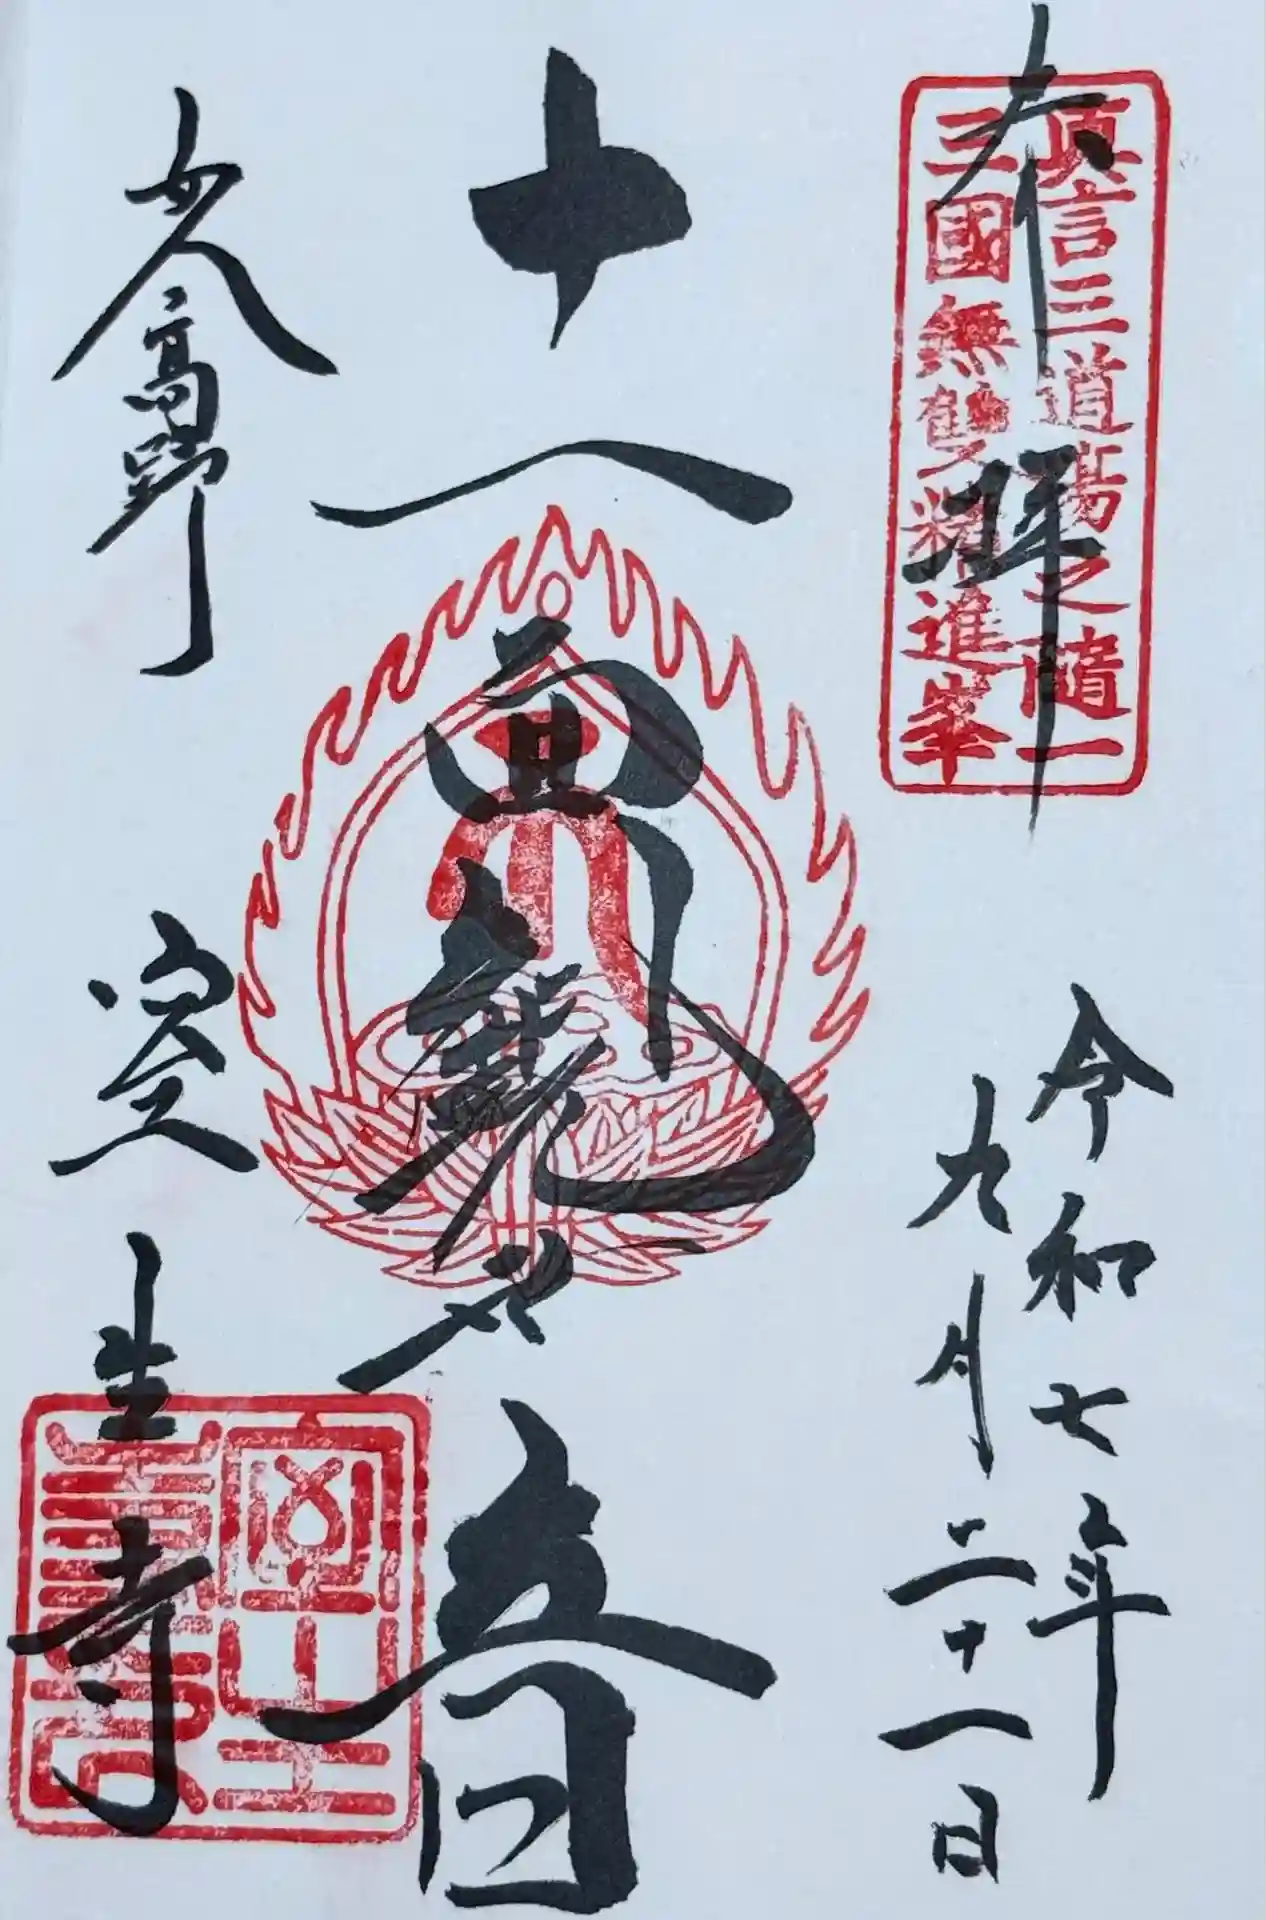 奉拝
真言三道場之隨一
三國無雙精進峯
令和七年
九月二十一日
十一面観世音
女人高野
室生寺